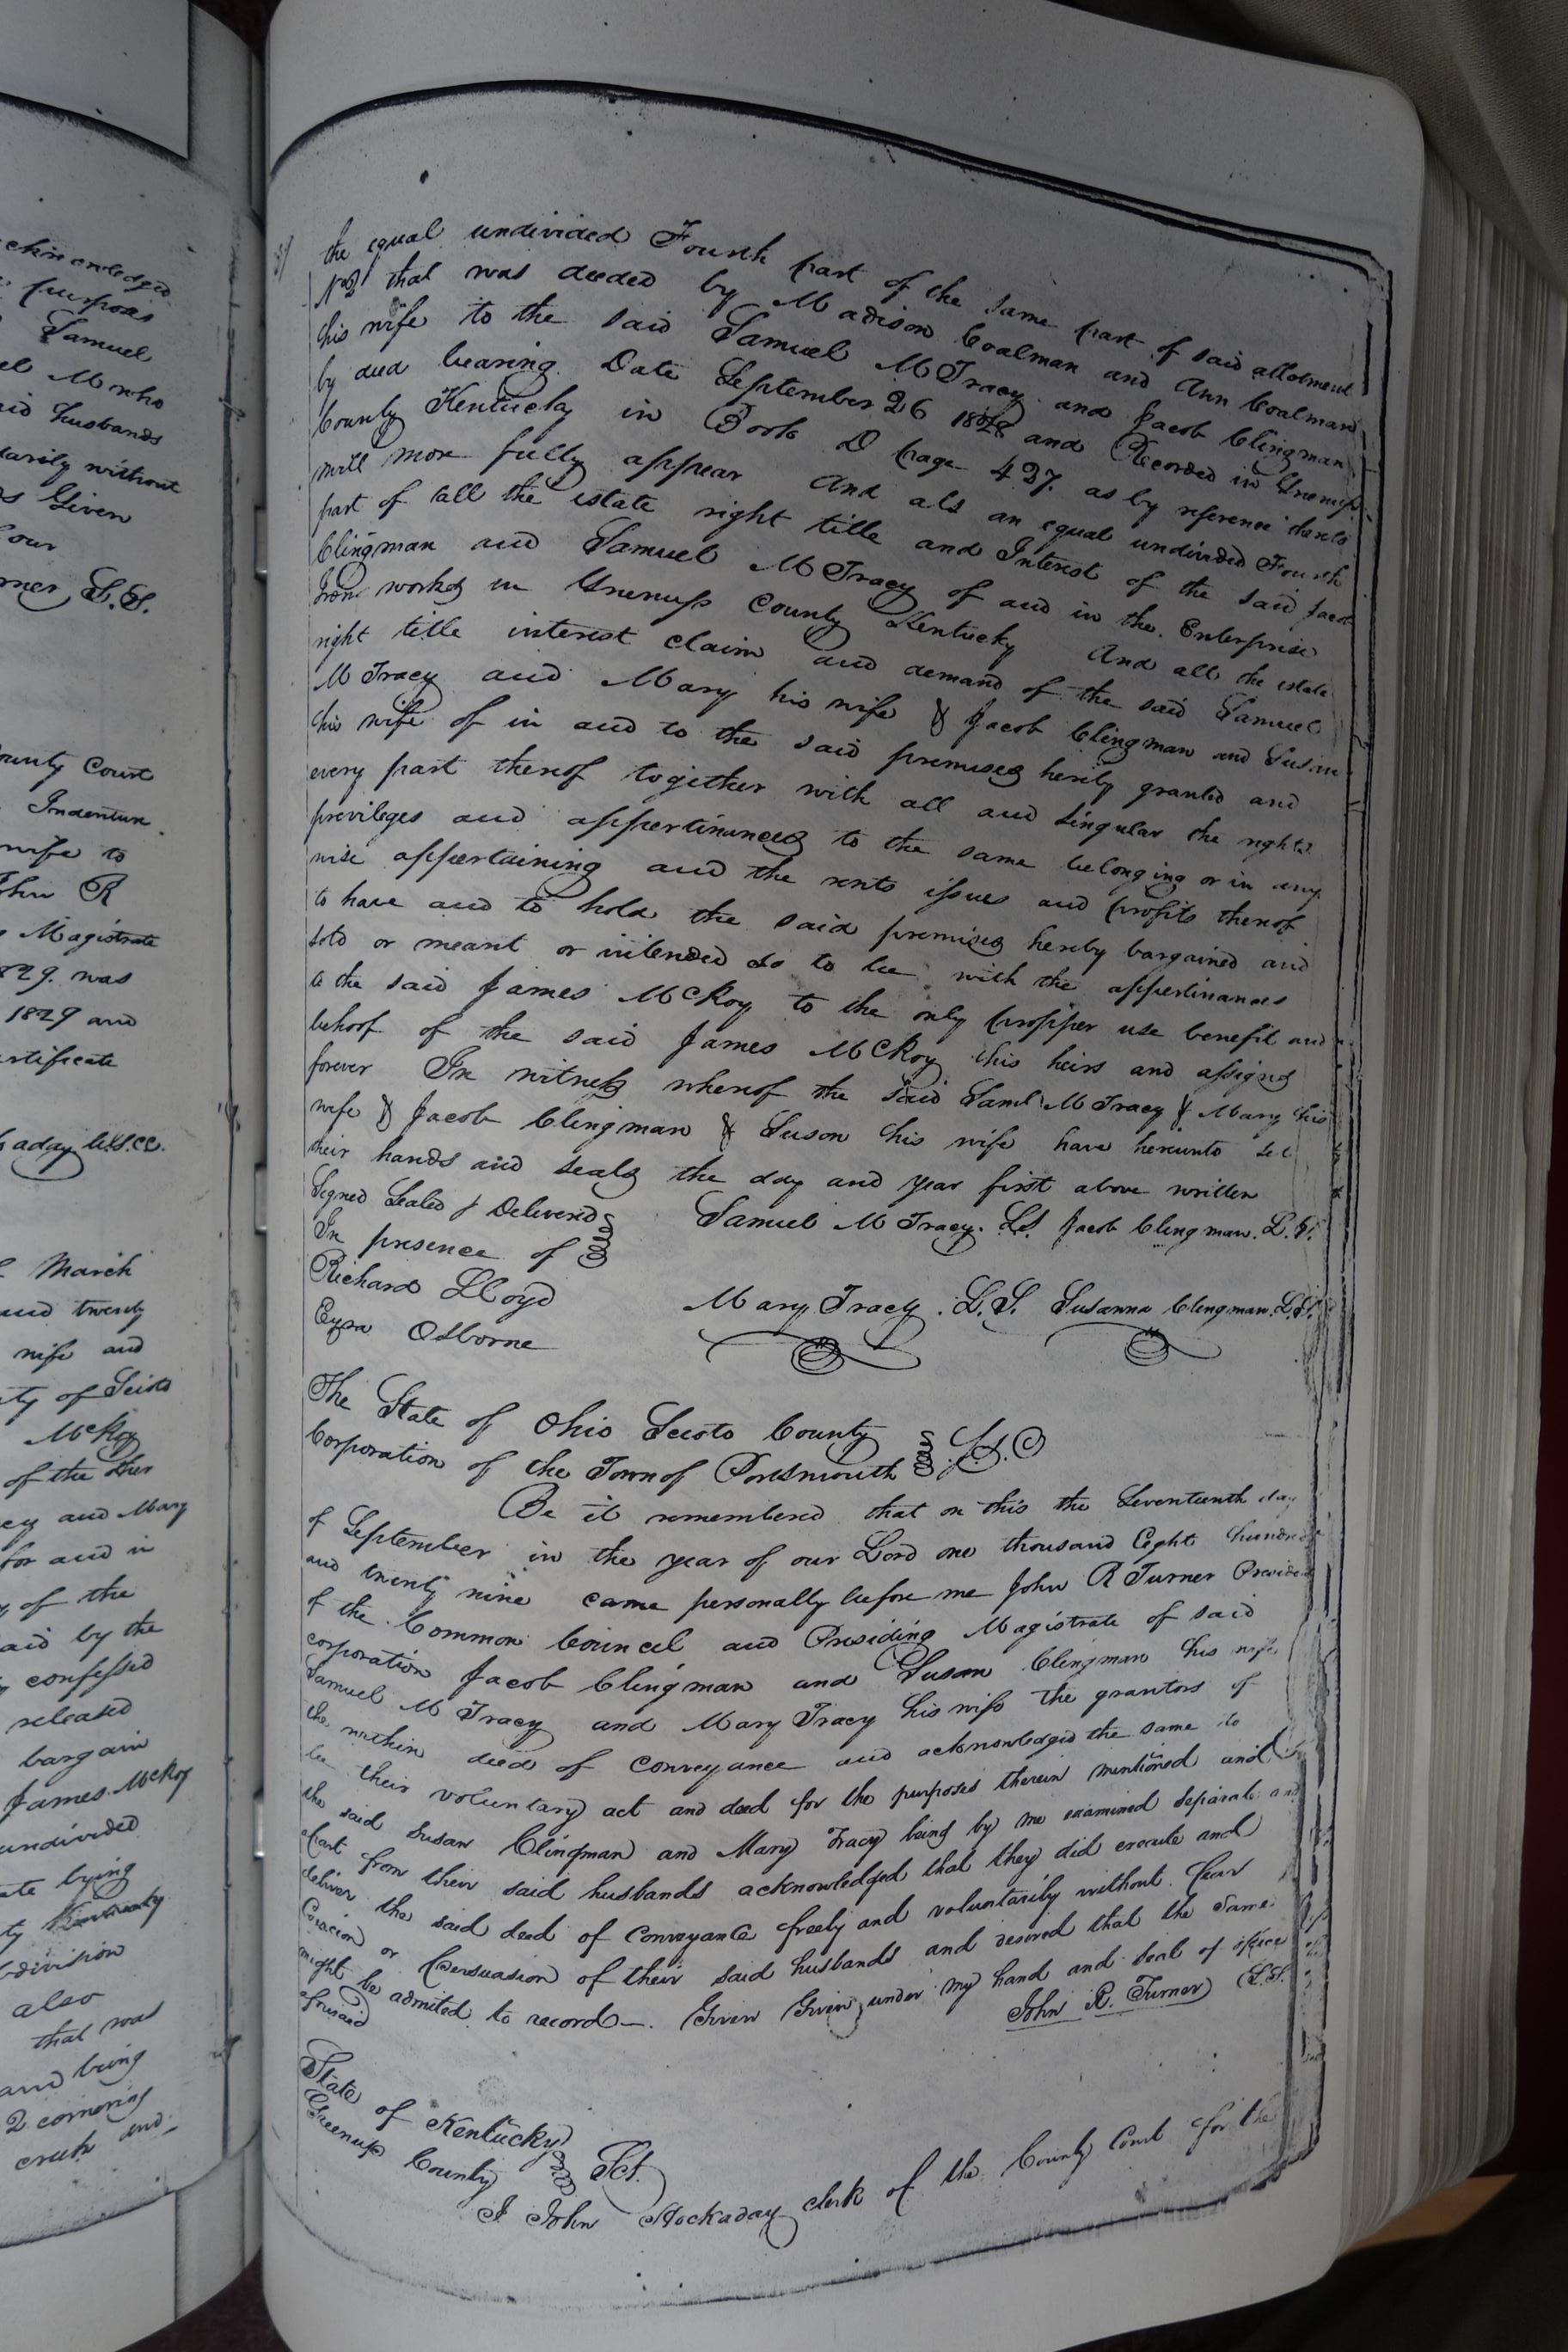 chknowledged
purposes
Samuel
el M who
aid husbands
tarily without
as Given
our
rner L.S.
ounty Court
Indenture
wife to
John R
Magistrate
829. was
1829 and
ertificate
kaday C.G.C.C.
March
and twenty
wife and
ty of Scioto
McKoy
of the other
cy and Mary
for and in
y of the
aid by the
confessed
released
bargain
James McKoy
undivided
ate lying
ty Kentucky
bdivision
also
that was
and being
2 cornering
creek and
the equal undivided Fourth part of the same part of said allotment
No 2 that was deeded by Madison Coalman and Ann Coalman
his wife to the said Samuel M Tracy and Jacob Clingman
by deed bearing Date September 26 1828 and Recorded in Greenup
County Kentucky in Book D page 427. as by reference thereto
will more fully appear And als an equal undivided Fourth
part of all the estate right title and Interest of the said Jacob
Clingman and Samuel M Tracy of and in the Enterprise
Iron works in Greenup County Kentucky And all the estate
right title interest claim and demand of the said Samuel
M Tracy and Mary his wife & Jacob Clingman and Susan
his wife of in and to the said premises hereby granted and
every part thereof together with all and singular the rights
previleges and appertinances to the same belonging or in any
wise appertaining and the rents issues and profits thereof
to have and to hold the said premises hereby bargained and
sold or meant or intended so to be with the appertinances
to the said James McKoy to the only propper use benefit and
behoof of the said James McKoy his heirs and assigns
forever In witness whereof the said Saml M Tracy & Mary his
wife & Jacob Clingman & Suson his wife have hereunto set
their hands and seals the day and year first above written
Signed Sealed & Delivered
In presence of
Samuel M Tracy. L.S. Jacob Clingman. L.S.
Richard Lloyd
Ezra Osborne
Mary Tracy. L.S. Susanna Clingman. L.S.
The State of Ohio Scioto County
Corporation of the Town of Portsmouth
Be it remembered that on this the Seventeenth day
of September in the year of our Lord one thousand Eight hundred
and twenty nine came personally before me John R Turner President
of the Common Councel and Presiding Magistrate of said
corporation Jacob Clingman and Susan Clingman his wife
Samuel M Tracy and Mary Tracy his wife the grantors of
the within deed of conveyance and acknowledged the same to
be their voluntary act and deed for the purposes therein mentioned and
the said Susan Clingman and Mary Tracy being by me examined separate and
apart from their said husbands acknowledged that they did execute and
deliver the said deed of conveyance freely and voluntarily without fear
Coercion or Persuasion of their said husbands and desired that the same
might be admited to record—. Given Given under my hand and seal of office
aforesaid John R. Turner L.S.
State of Kentucky
Greenup County Sct.
I John Hockaday clerk of the County Court for the